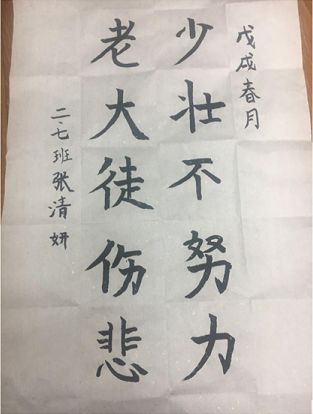 戊戌春月
少壮不努力
老大徒伤悲
二.七班张清妍